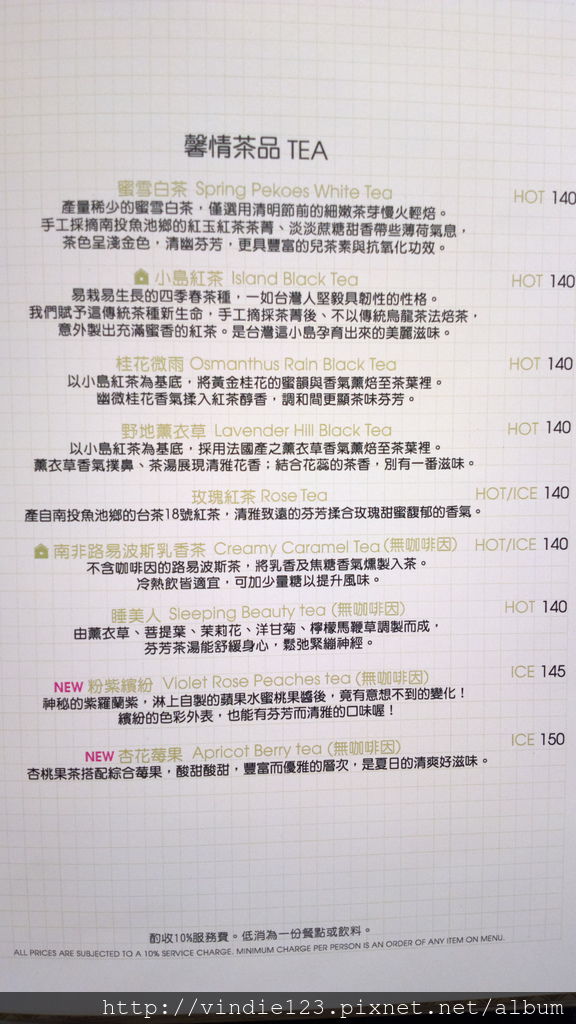 馨情茶品 TEA
蜜雪白茶 Spring Pekoes White Tea HOT 140
產量稀少的蜜雪白茶，僅選用清明節前的細嫩茶芽慢火輕焙。
手工採摘南投魚池鄉的紅玉紅茶茶菁、淡淡蔗糖甜香帶些薄荷氣息，
茶色呈淺金色，清幽芬芳，更具豐富的兒茶素與抗氧化功效。
小島紅茶 Island Black Tea HOT 140
易栽易生長的四季春茶種，一如台灣人堅毅具韌性的性格。
我們賦予這傳統茶種新生命，手工摘採茶菁後、不以傳統烏龍茶法焙茶，
意外製出充滿蜜香的紅茶。是台灣這小島孕育出來的美麗滋味。
桂花微雨 Osmanthus Rain Black Tea HOT 140
以小島紅茶為基底，將黃金桂花的蜜韻與香氣薰焙至茶葉裡。
幽微桂花香氣揉入紅茶醇香，調和間更顯茶味芬芳。
野地薰衣草 Lavender Hill Black Tea HOT 140
以小島紅茶為基底，採用法國產之薰衣草香氣薰焙至茶葉裡。
薰衣草香氣撲鼻、茶湯展現清雅花香；結合花蕊的茶香，別有一番滋味。
玫瑰紅茶 Rose Tea HOT/ICE 140
產自南投魚池鄉的台茶18號紅茶，清雅致遠的芬芳揉合玫瑰甜蜜馥郁的香氣。
南非路易波斯乳香茶 Creamy Caramel Tea (無咖啡因) HOT/ICE 140
不含咖啡因的路易波斯茶，將乳香及焦糖香氣燻製入茶。
冷熱飲皆適宜，可加少量糖以提升風味。
睡美人 Sleeping Beauty tea (無咖啡因) HOT 140
由薰衣草、菩提葉、茉莉花、洋甘菊、檸檬馬鞭草調製而成，
芬芳茶湯能舒緩身心，鬆弛緊繃神經。
NEW 粉紫繽紛 Violet Rose Peaches tea (無咖啡因) ICE 145
神秘的紫羅蘭紫，淋上自製的蘋果水蜜桃果醬後，竟有意想不到的變化！
繽紛的色彩外表，也能有芬芳而清雅的口味喔！
NEW 杏花莓果 Apricot Berry tea (無咖啡因) ICE 150
杏桃果茶搭配綜合莓果，酸甜酸甜，豐富而優雅的層次，是夏日的清爽好滋味。
酌收10%服務費。低消為一份餐點或飲料。
ALL PRICES ARE SUBJECTED TO A 10% SERVICE CHARGE. MINIMUM CHARGE PER PERSON IS AN ORDER OF ANY ITEM ON MENU.
http://vindie123.pixnet.net/album